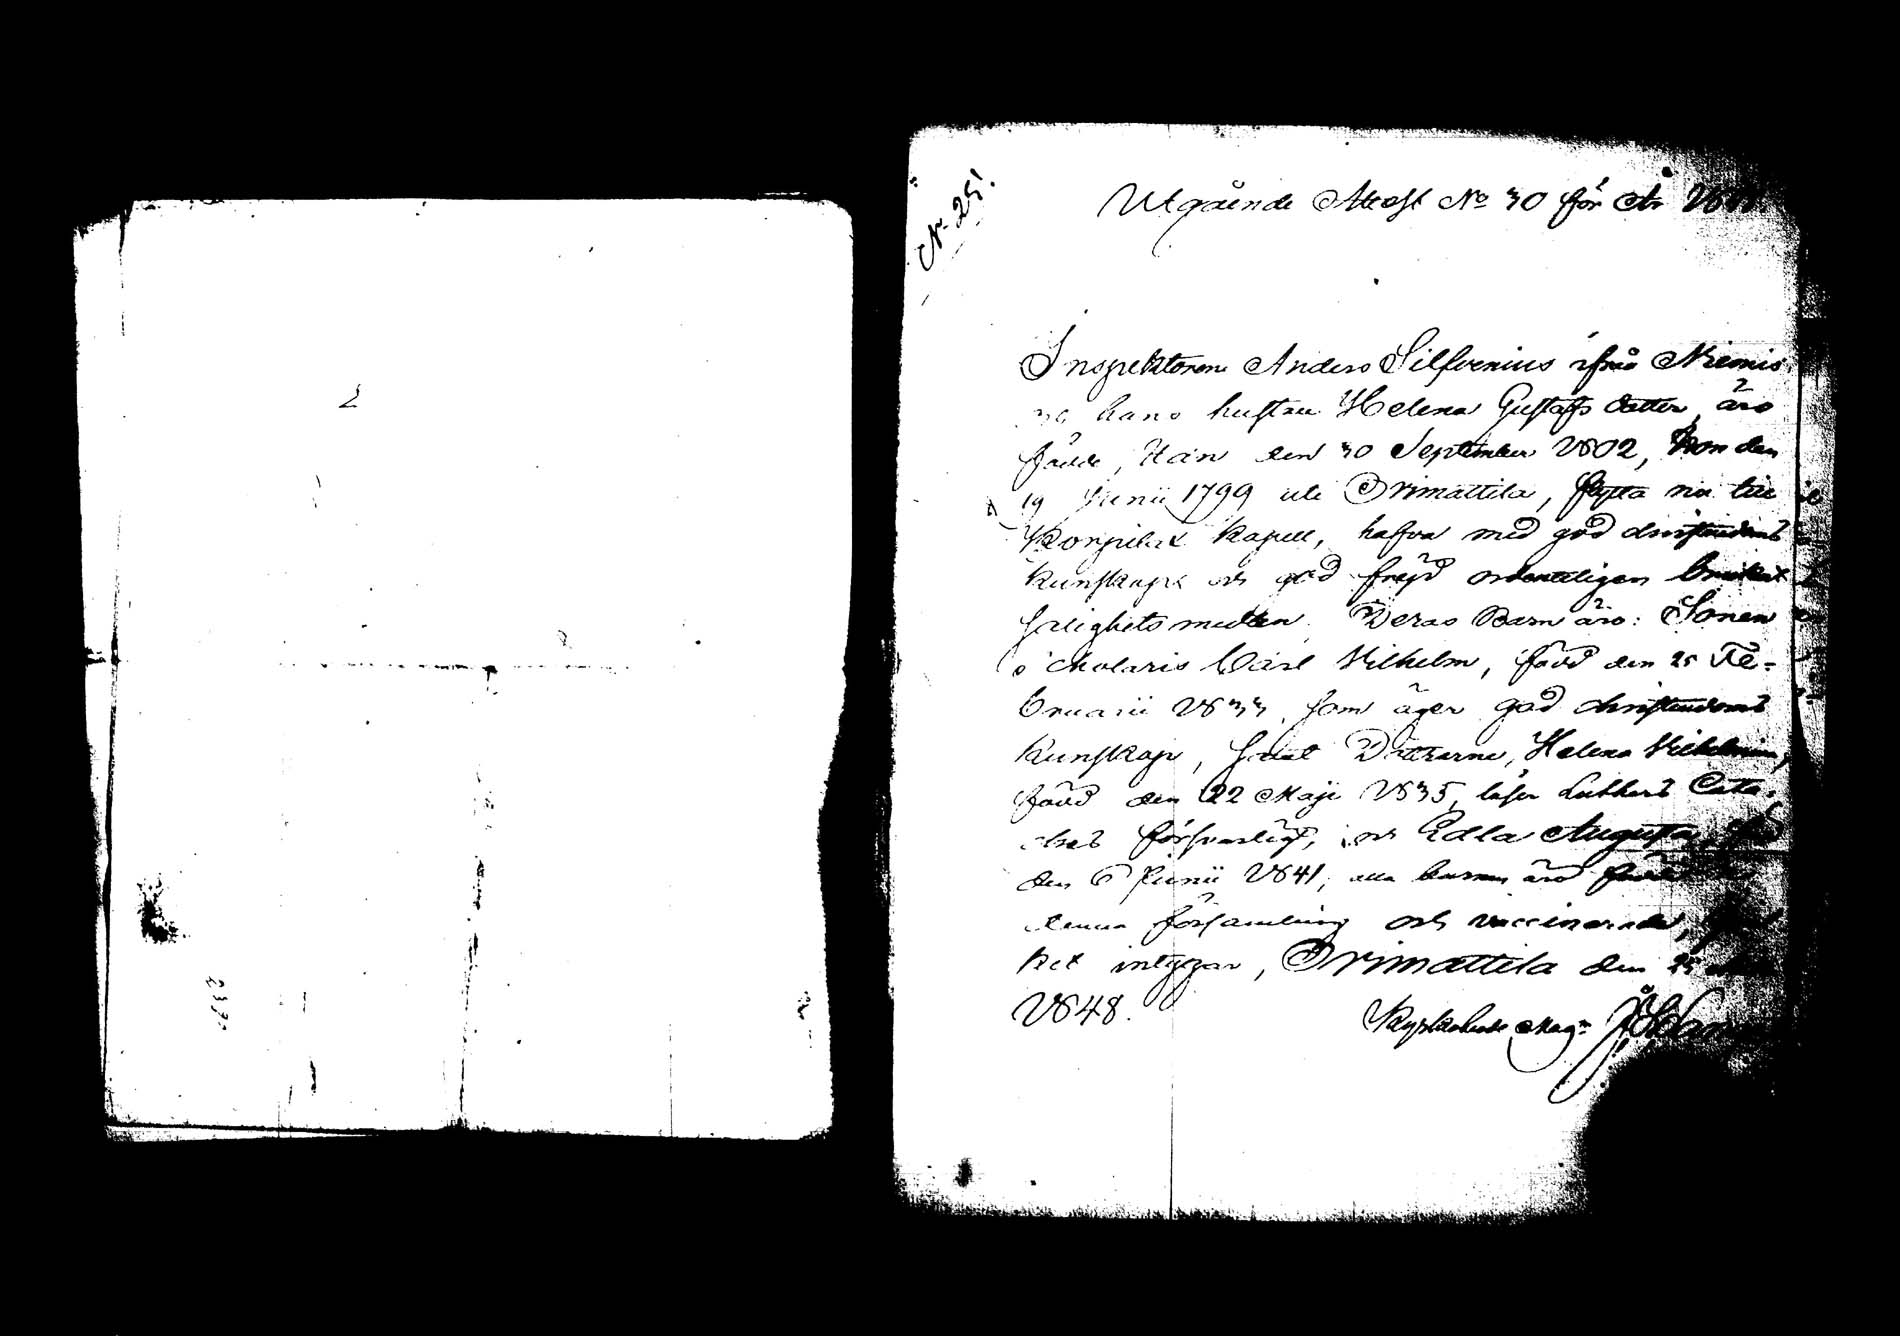 N. 25!
Utgående Attest No 30 för År 1848
Inspektoren Anders Silfvenius ifrån Niemis
hans hustru Helena Gustafs dotter, äro
födde, Han den 30 September 1802, hon den
19 Junii 1799 uti Orimattila, flytta nu till
Korpilax Kapell, hafva med god christendoms
kunskap och god frejd ordentligen brukat
salighets medlen. Deras Barn äro: Sonen
Scholaris Carl Vilhelm, född den 25 Fe-
bruarii 1833, som äger god christendoms
kunskap, samt Döttrarne, Helena Vilhelmina,
född den 22 Maji 1835, läser Lutheri Cate-
ches försvarligt, och Edla Augusta, född
den 6 Junii 1841, alla barnen äro födde
denna församling och vaccinerade,
ket intygar, Orimattila den 25
1848.
Kyrkoherde
2